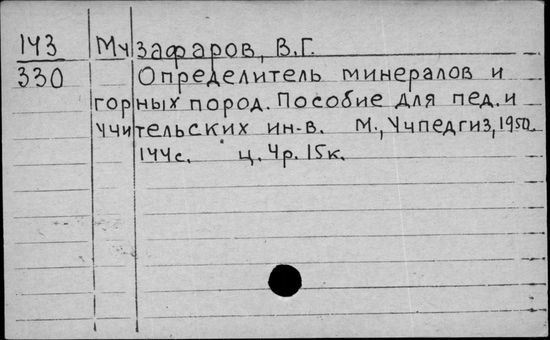 143 Музафаров, В.Г.
330 Определитель минералов и
горных пород. Пособие для пед. и
учительских ин-в. М., Учпедгиз, 1950.
144с. ц. 4р. 15к.